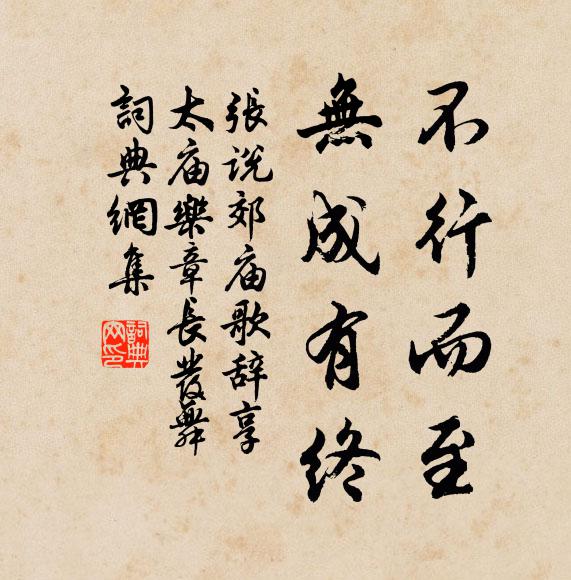 不行而至
無成有終
張說郊庙歌辞享
太庙樂章長發舞
詞典網集
詞典网印